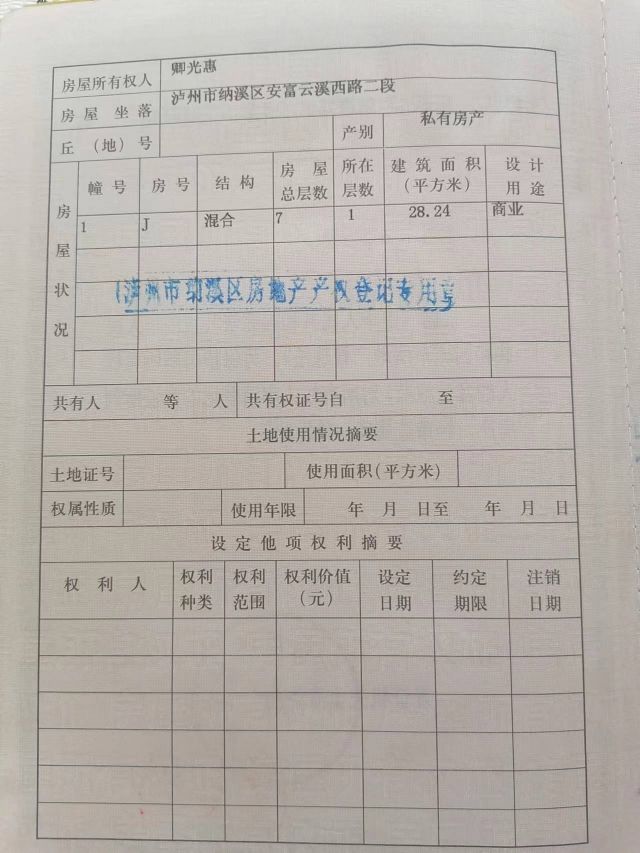 房屋所有权人 卿光惠
房屋坐落 泸州市纳溪区安富云溪西路二段
丘（地）号 产别 私有房产
房屋状况
幢号 房号 结构 房屋总层数 所在层数 建筑面积（平方米） 设计用途
1 J 混合 7 1 28.24 商业
泸州市纳溪区房地产产权登记专用章
共有人 等 人 共有权证号自 至
土地使用情况摘要
土地证号 使用面积(平方米)
权属性质 使用年限 年 月 日至 年 月 日
设定他项权利摘要
权利人 权利种类 权利范围 权利价值（元） 设定日期 约定期限 注销日期